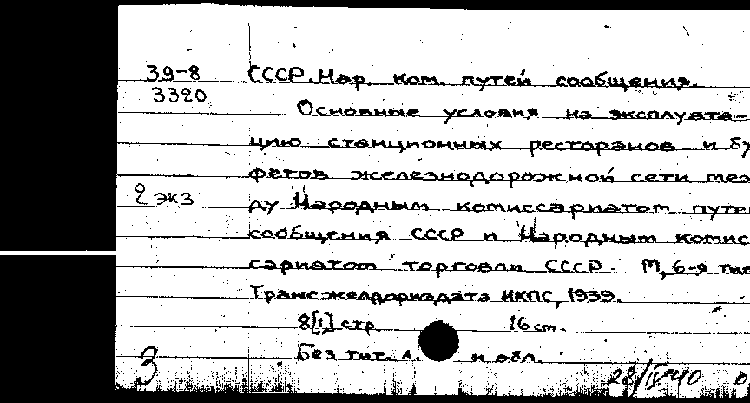 39-8 СССР. Нар. ком. путей сообщения.
3320
Основные условия на эксплуата-
цию станционных ресторанов и бу
фетов железнодорожной сети меж
2 экз ду Народным комиссариатом путе
сообщения СССР и Народным комис
сариатом торговли СССР. М, 6-я тип
Трансжелдориздата НКПС, 1939.
8[1] стр. 16 см.
Без тит. л. и обл.
3 28/IV-40